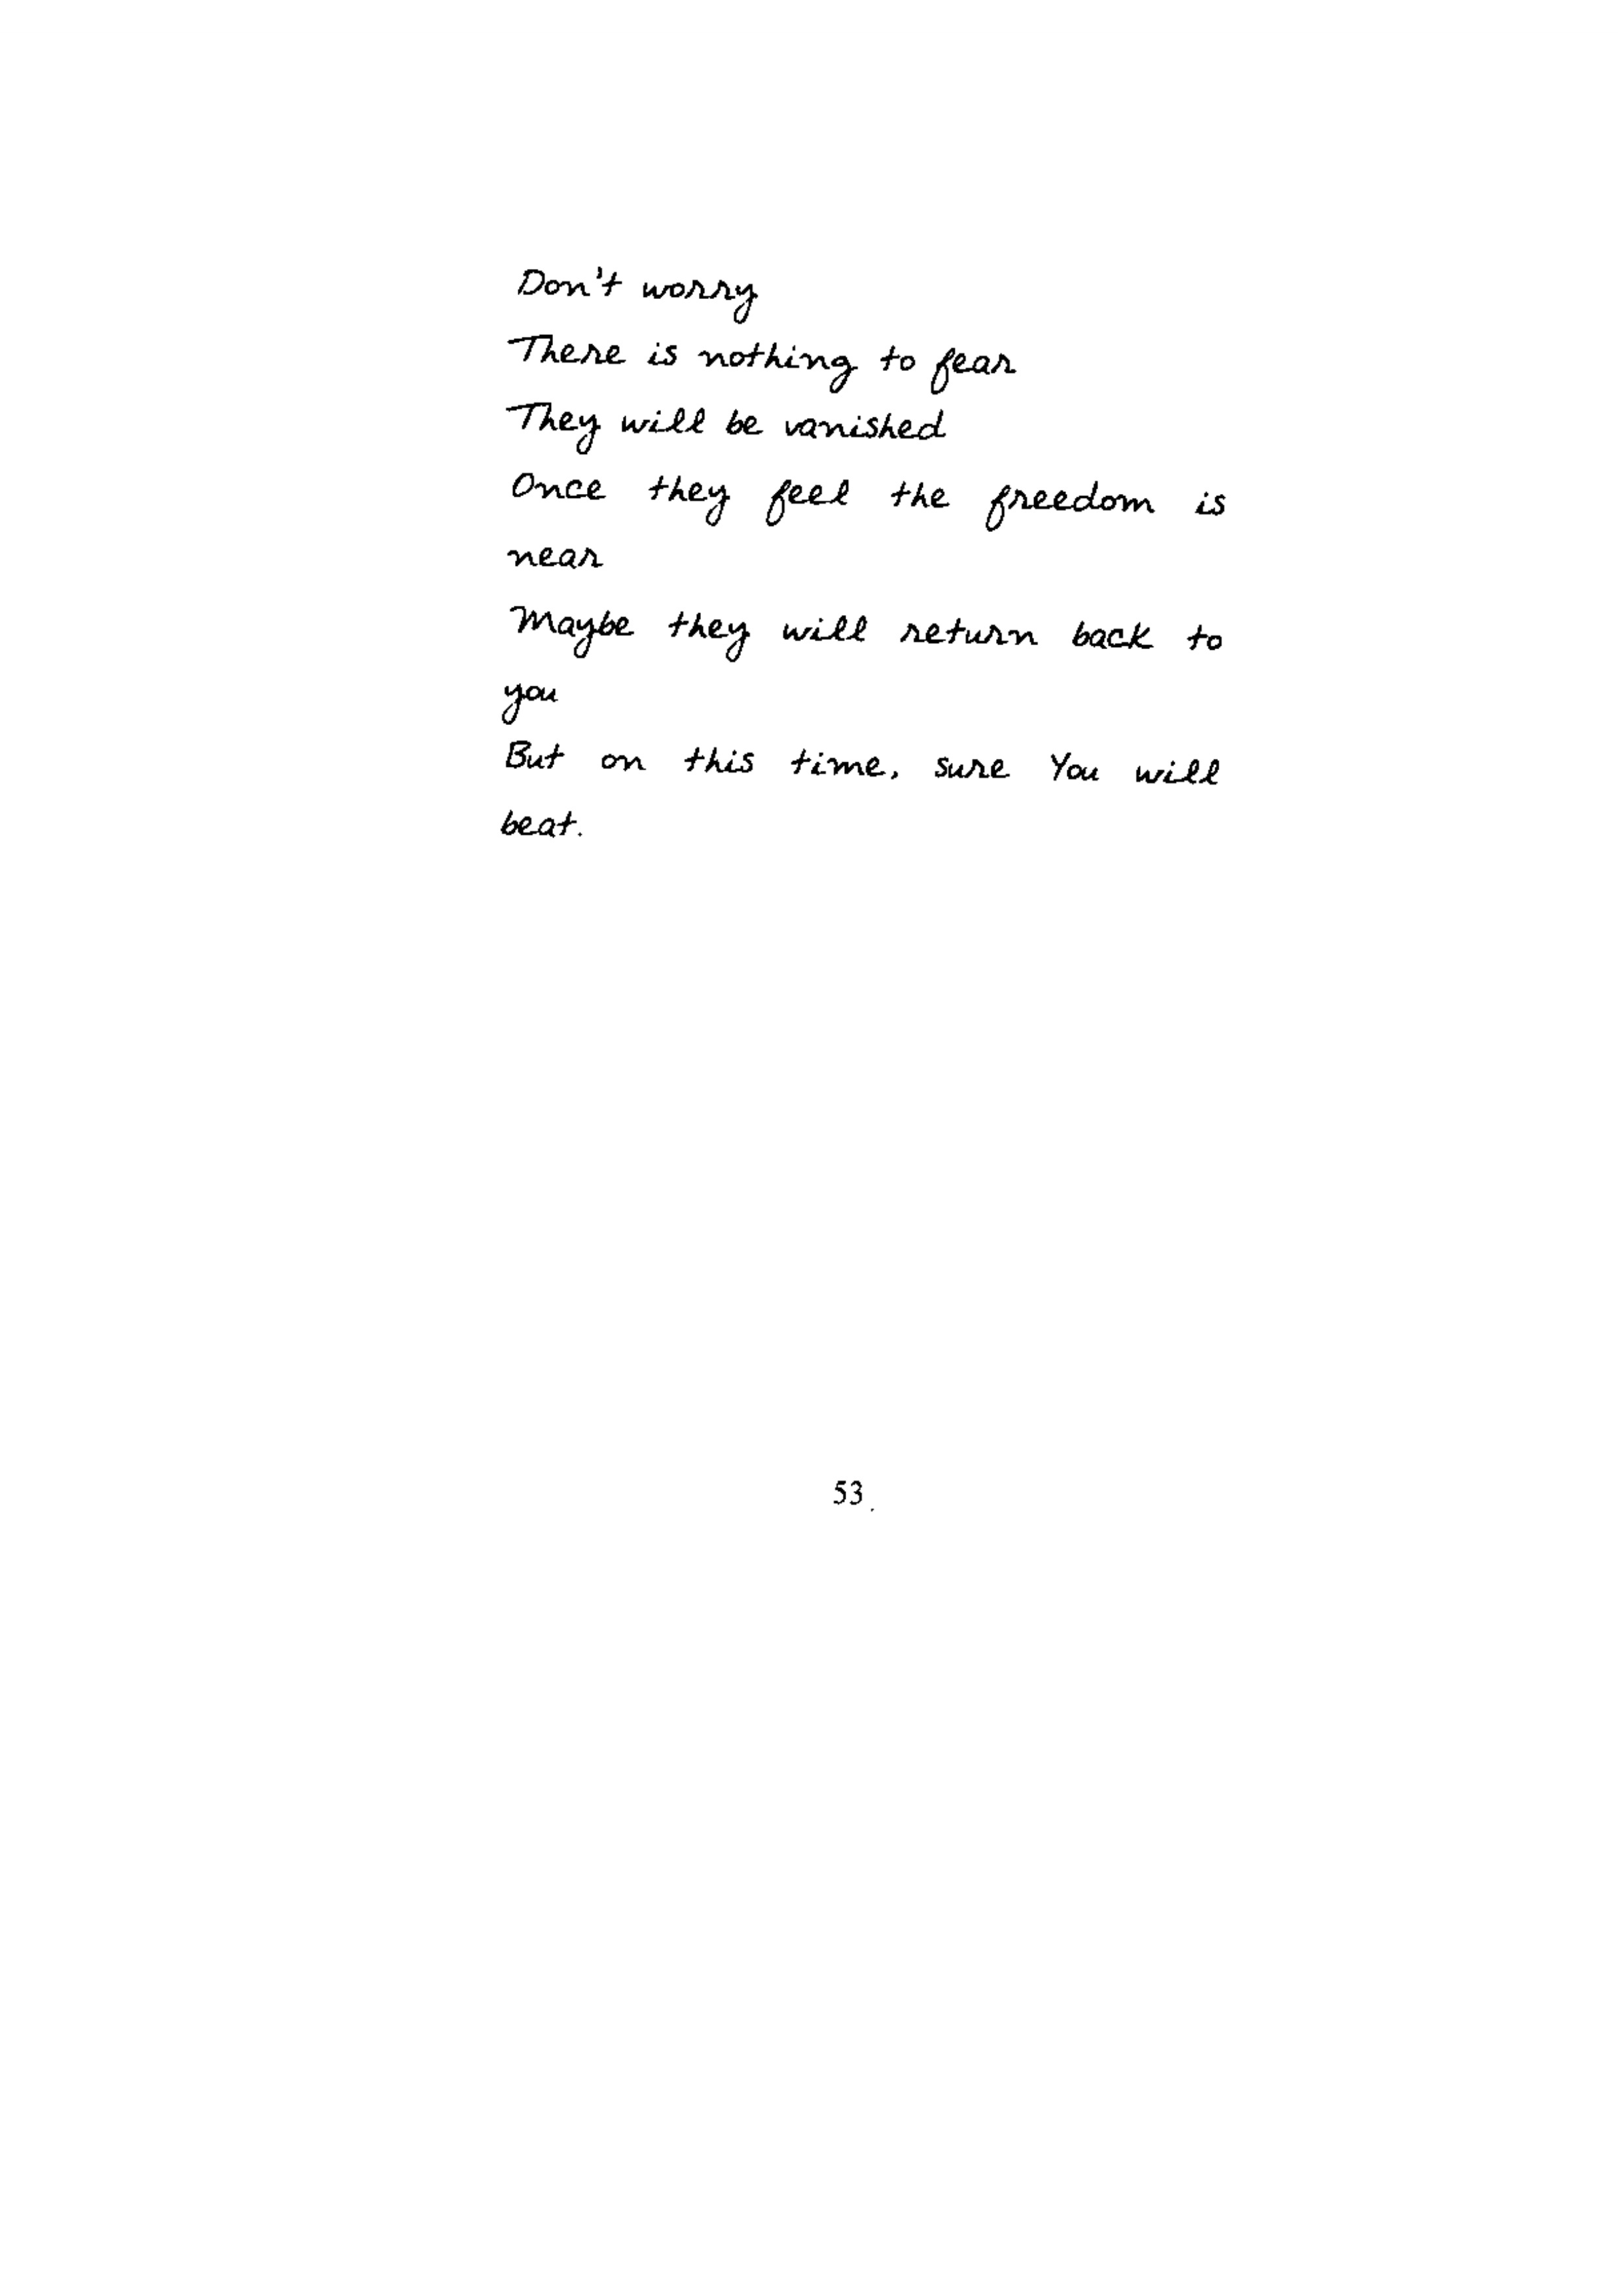 Don't worry
There is nothing to fear
They will be vanished
Once they feel the freedom is
near
Maybe they will return back to
you
But on this time, sure You will
beat.
53